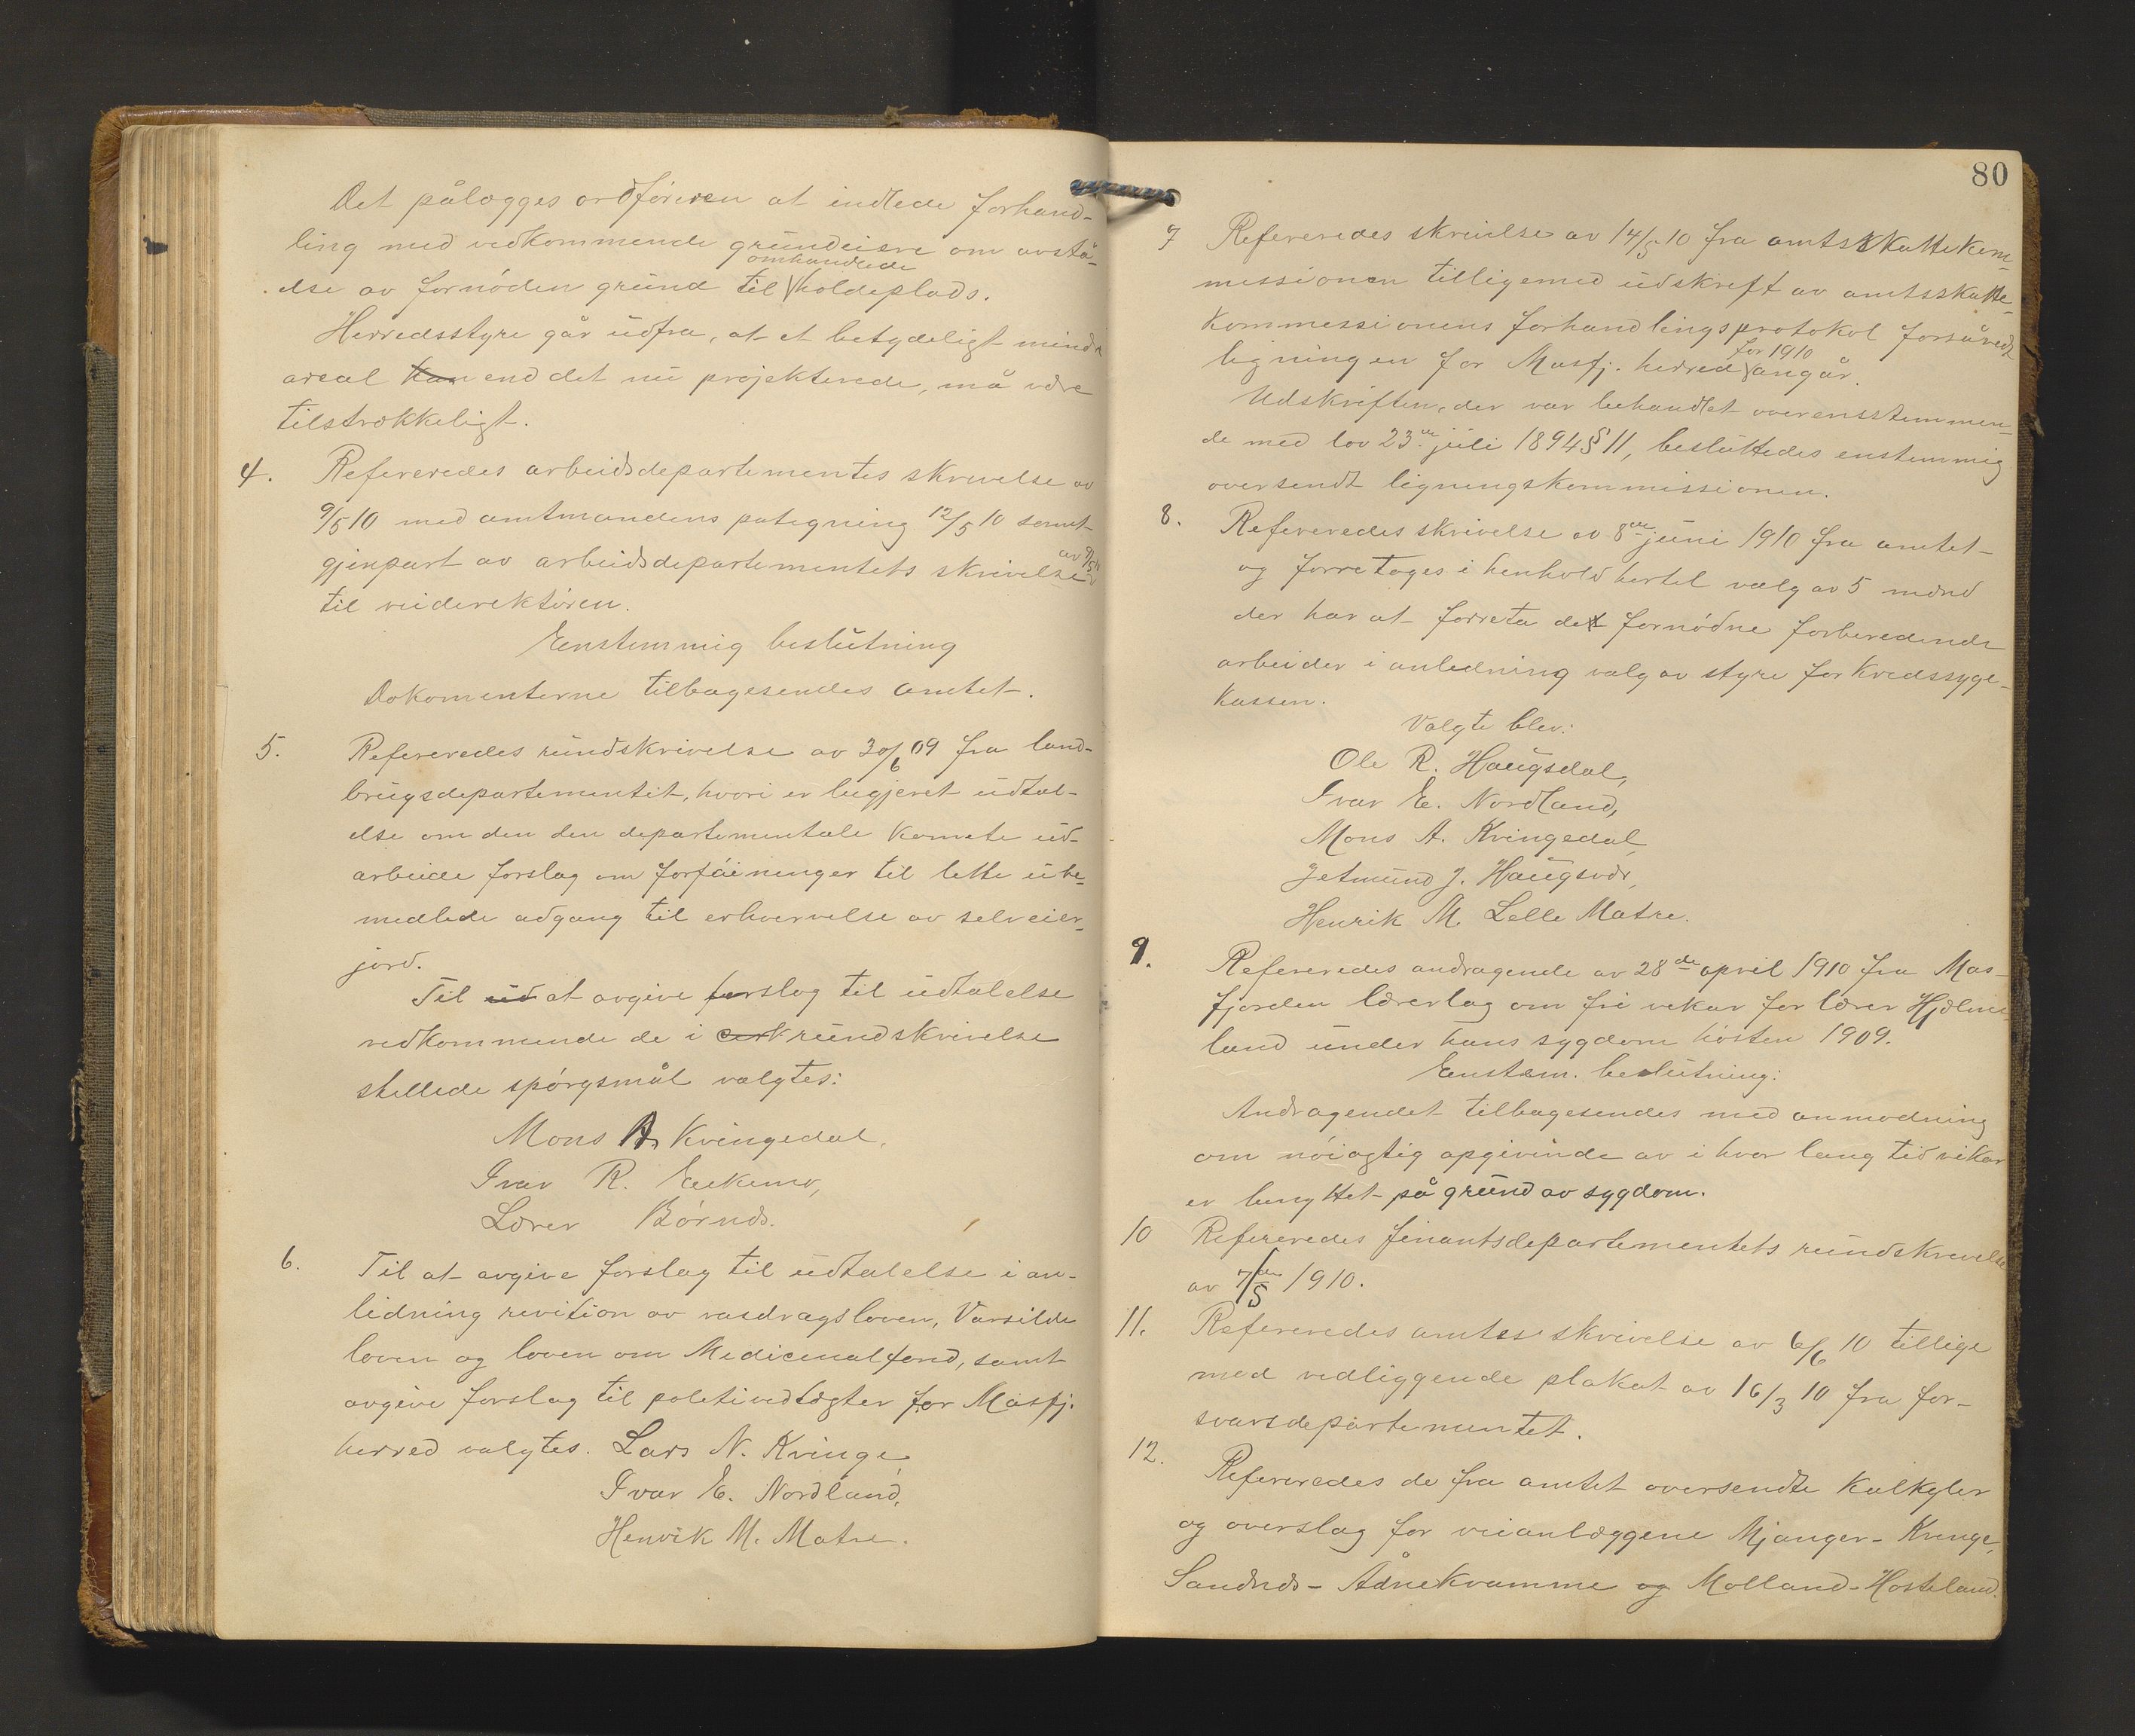 Det pålægges ordføreren at indlede forhand-
ling med vedkommende grundeiere om avstå-
else av fornöden grund til omhandlede holdeplads.
Herredsstyre går udfra, at et betydeligt mindre
areal kan end det nu projekterede, må være
tilstrækkeligt.
4. Refereredes arbeidsdepartementes skrivelse av
9/5 10 med amtmandens påtegning 12/5 10 samt
gjenpart av arbeidsdepartementets skrivelse av 9/5 10
til veidirektören.
Eenstemmig beslutning
Dokomenterne tilbagesendes amtet.
5. Refereredes rundskrivelse av 30/6 09 fra land-
brugsdepartementet, hvori er begjeret udtal-
else om den den departementale komite ud-
arbeide forslag om forföininger til lette ube-
medlede adgang til erhvervelse av selveier-
jord.
Til ud at avgive forslag til udtalelse
vedkommende de i cirk rundskrivelse
stillede spörgsmål valgtes:
Mons A. Kvingedal,
Ivar R. Eeknæs,
Lærer Börnæs.
6. Til at avgive forslag til udtalelse i an-
ledning revition av vasdragsloven, Vårsilde
loven og loven om Medicinalfond, samt
avgive forslag til politivedtægter for Masfj.
herred valgtes. Lars N. Kvinge,
Ivar E. Nordland,
Henrik M. Matre.
80
7 Refereredes skrivelse av 14/5 10 fra amtsskattekom-
missionen tilligemed udskrift av amtsskatte-
kommissionens forhandlingsprotokol forsåvidt
ligningen for Masfj. herred for 1910 angår.
Udskriften, der var behandlet overensstemmen-
de med lov 23de juli 1894 § 11, besluttedes enstemmig
oversendt ligningskommissionen.
8. Refereredes skrivelse av 8de juni 1910 fra amtet
og foretoges i henhold hertil valg av 5 mænd
der har at forreta det fornödne forberedende
arbeider i anledning valg av styre for kredssyge-
kassen.
Valgte blev:
Ole R. Haugsdal,
Ivar E. Nordland,
Mons A. Kvingedal,
Jetmund J. Haugsvær,
Henrik M. Lelle Matre.
9. Refereredes andragende av 28de april 1910 fra Mas-
fjorden lærerlag om fri vikar for lærer Hjelme-
land under hans sygdom hösten 1909.
Eenstem. beslutning:
Andragendet tilbagesendes med anmodning
om nöiagtig opgivende av i hvor lang tid vikar
er benyttet på grund av sygdom.
10 Refereredes finantsdepartementets rundskrivelse
av 7/5 de 1910.
11. Refereredes amtes skrivelse av 6/6 10 tillige
med vedliggende plakat av 16/3 10 fra for-
svarsdepartementet.
12. Refereredes de fra amtet oversendte kalkyler
og overslag for veianlæggene Mjanger-Kvinge,
Sandnæs-Ådnekvamme og Molland-Hosteland.